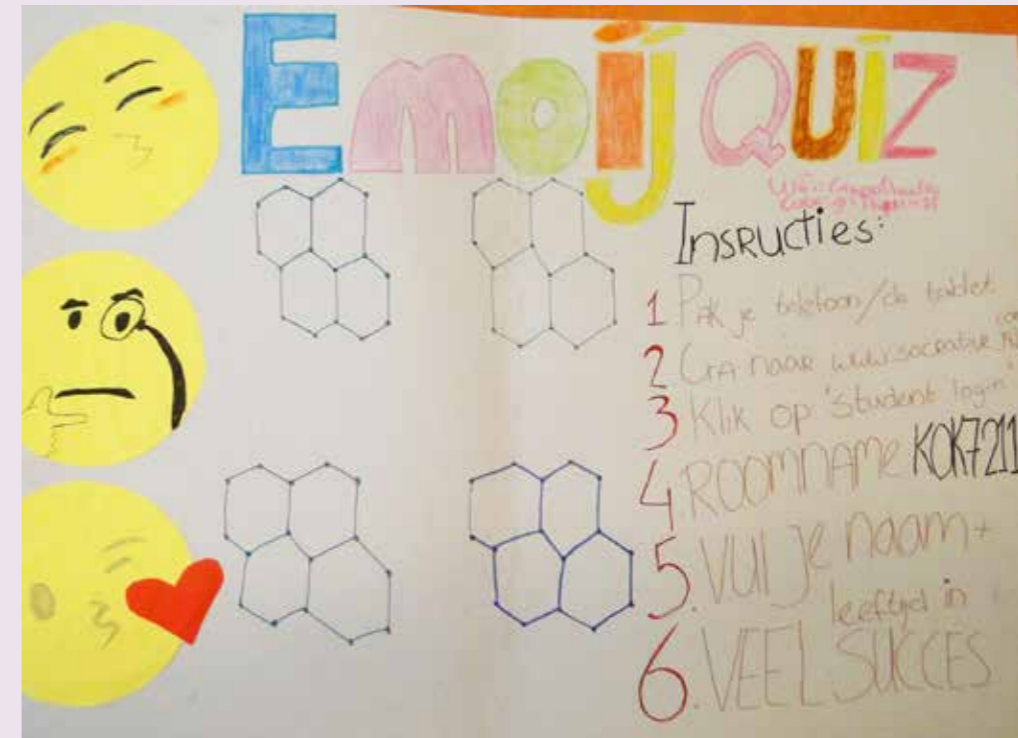 Emoij QUiZ
InsRUCties:
1 PAK je telefoon/de tablet
2 GA naar www.socrative
3 Klik op 'student login'
4. ROOMNAME KOK7211
5. VUl Je naam +
leeftijd in
6. VEEL SUCCES